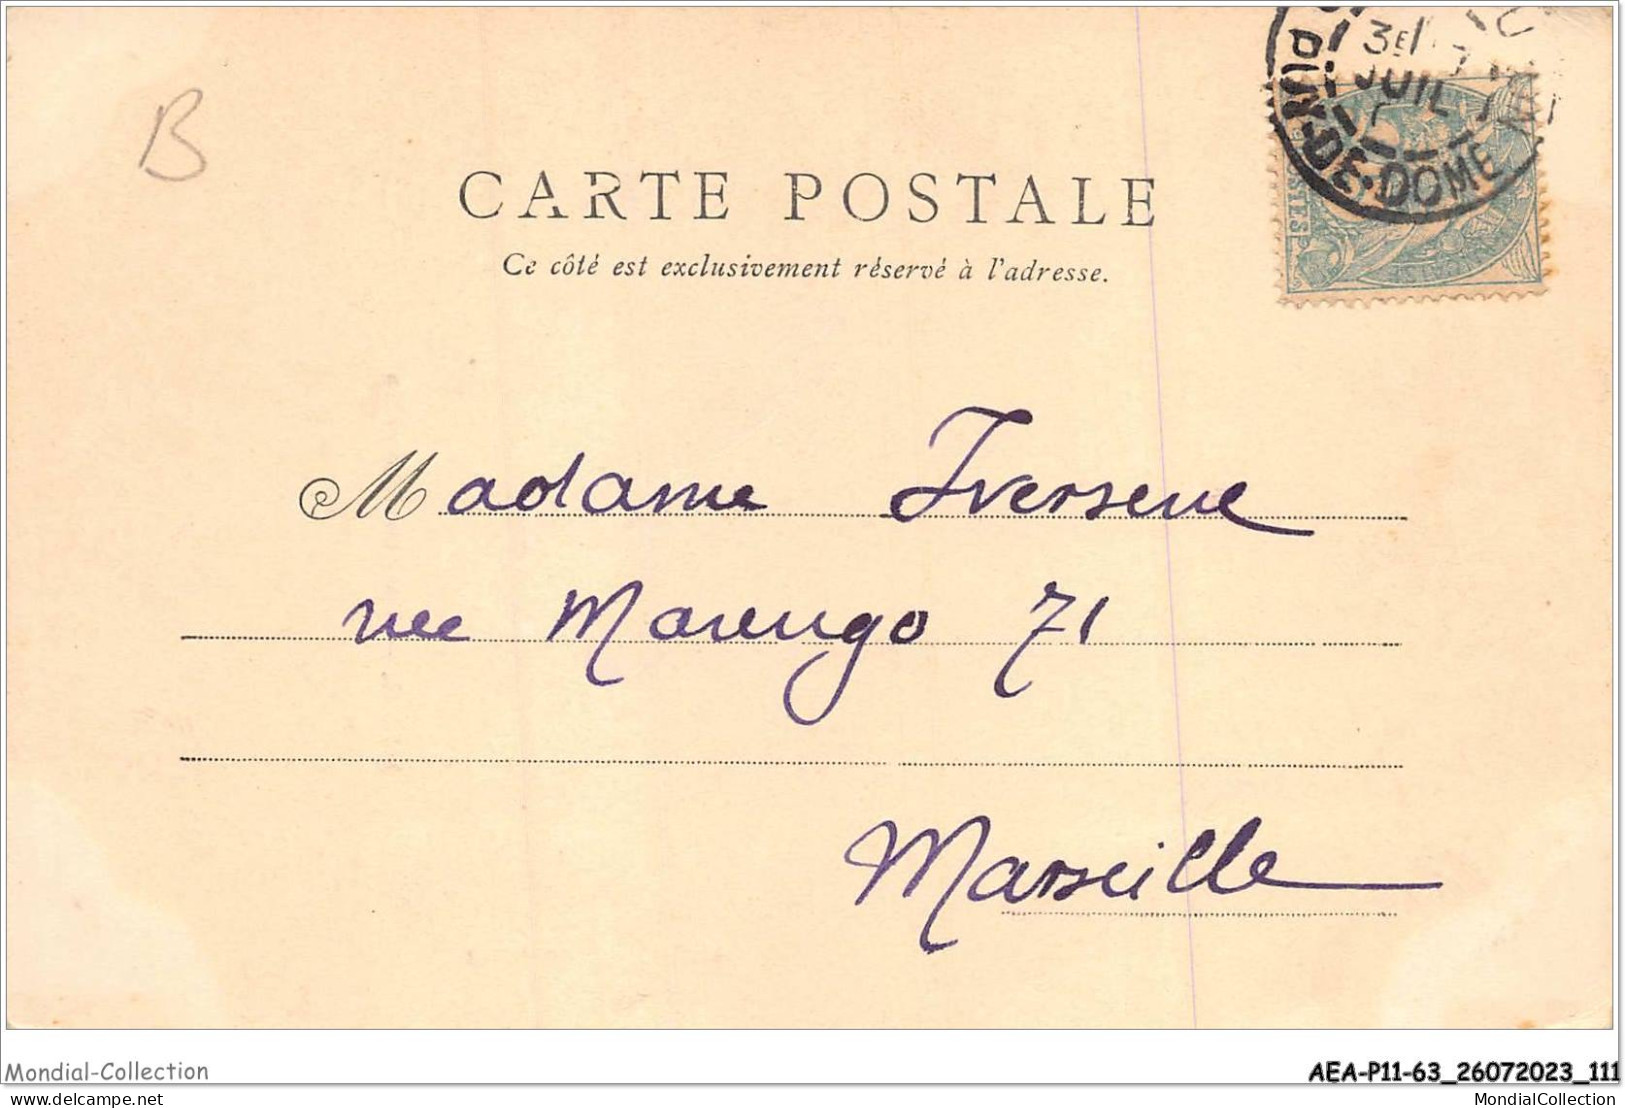 B
3E
JUIL
PUY-DE-DOME
POSTES
CARTE POSTALE
Ce côté est exclusivement réservé à l'adresse.
Madame Iversene
rue Marengo 71
Marseille
Mondial-Collection
AEA-P11-63_26072023_111
delcampe.net
MondialCollection